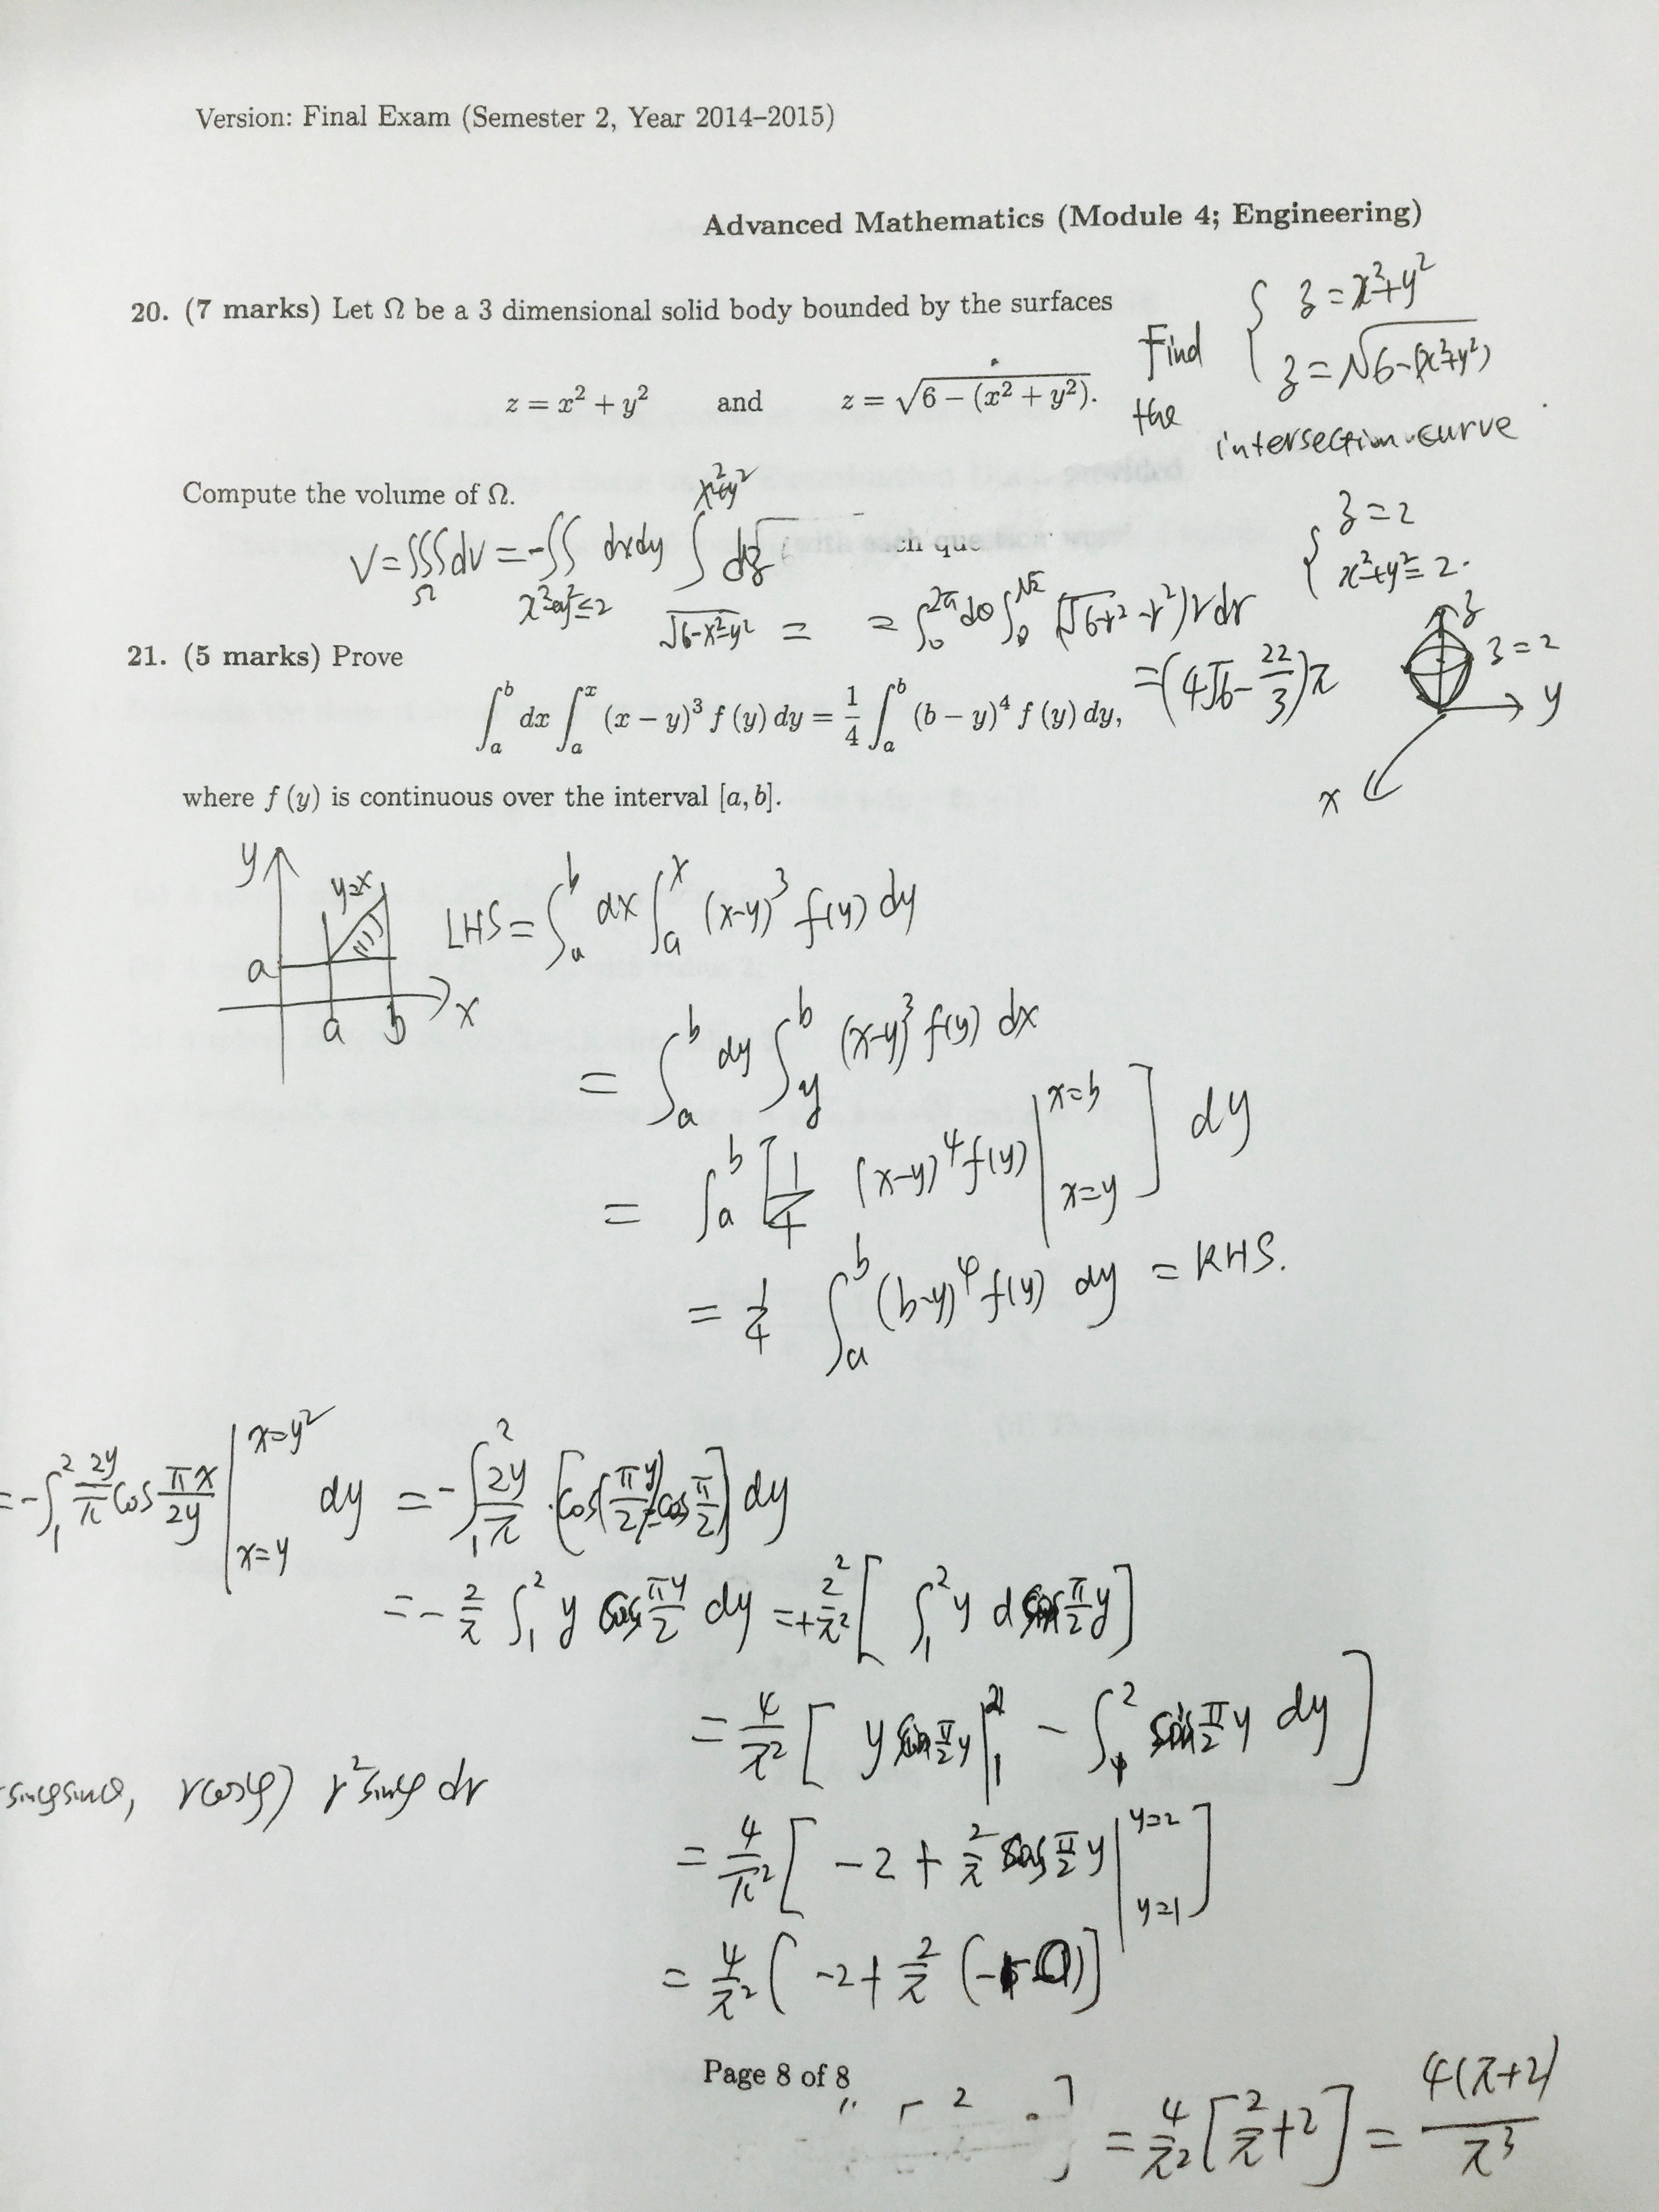 Version: Final Exam (Semester 2, Year 2014–2015)
Advanced Mathematics (Module 4; Engineering)
20. (7 marks) Let Ω be a 3 dimensional solid body bounded by the surfaces
z = x² + y² and z = √(6 − (x² + y²)).
Find the { z = x²+y²
z = √(6-(x²+y²))
intersection curve
Compute the volume of Ω.
V = ∭_Ω dV = -∬_{x²+y²≤2} dxdy ∫_{√(6-x²-y²)}^{x²+y²} dz
{ z = 2
x²+y² = 2.
= = ∫_0^{2π} dθ ∫_0^{√2} (√(6-r²) - r²) r dr
= (4√6 - 22/3)π
z
z = 2
y
x
21. (5 marks) Prove
∫_a^b dx ∫_a^x (x − y)³ f (y) dy = 1/4 ∫_a^b (b − y)⁴ f (y) dy,
where f (y) is continuous over the interval [a, b].
y
y=x
a
a b x
LHS = ∫_a^b dx ∫_a^x (x-y)³ f(y) dy
= ∫_a^b dy ∫_y^b (x-y)³ f(y) dx
= ∫_a^b [1/4 (x-y)⁴ f(y) |_{x=y}^{x=b}] dy
= 1/4 ∫_a^b (b-y)⁴ f(y) dy = RHS.
= -∫_1^2 2y/π cos πx/2y |_{x=y}^{x=y²} dy = -∫_1^2 2y/π · [cos(πy/2) - cos π/2] dy
= - 2/π ∫_1^2 y cos πy/2 dy = + 2²/π² [ ∫_1^2 y d sin π/2 y ]
= 4/π² [ y sin π/2 y |_1^2 - ∫_1^2 sin π/2 y dy ]
sinφsinθ, rcosφ) r² sinφ dr
= 4/π² [ -2 + 2/π cos π/2 y |_{y=1}^{y=2} ]
= 4/π² ( -2 + 2/π
Page 8 of 8
= 4/π² [2/π + 2] = 4(π+2)/π³